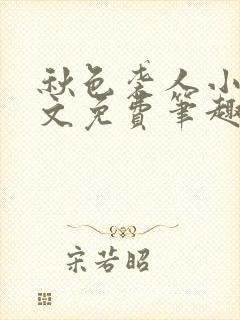 秋色袭人小
文免费笔趣
宋若昭